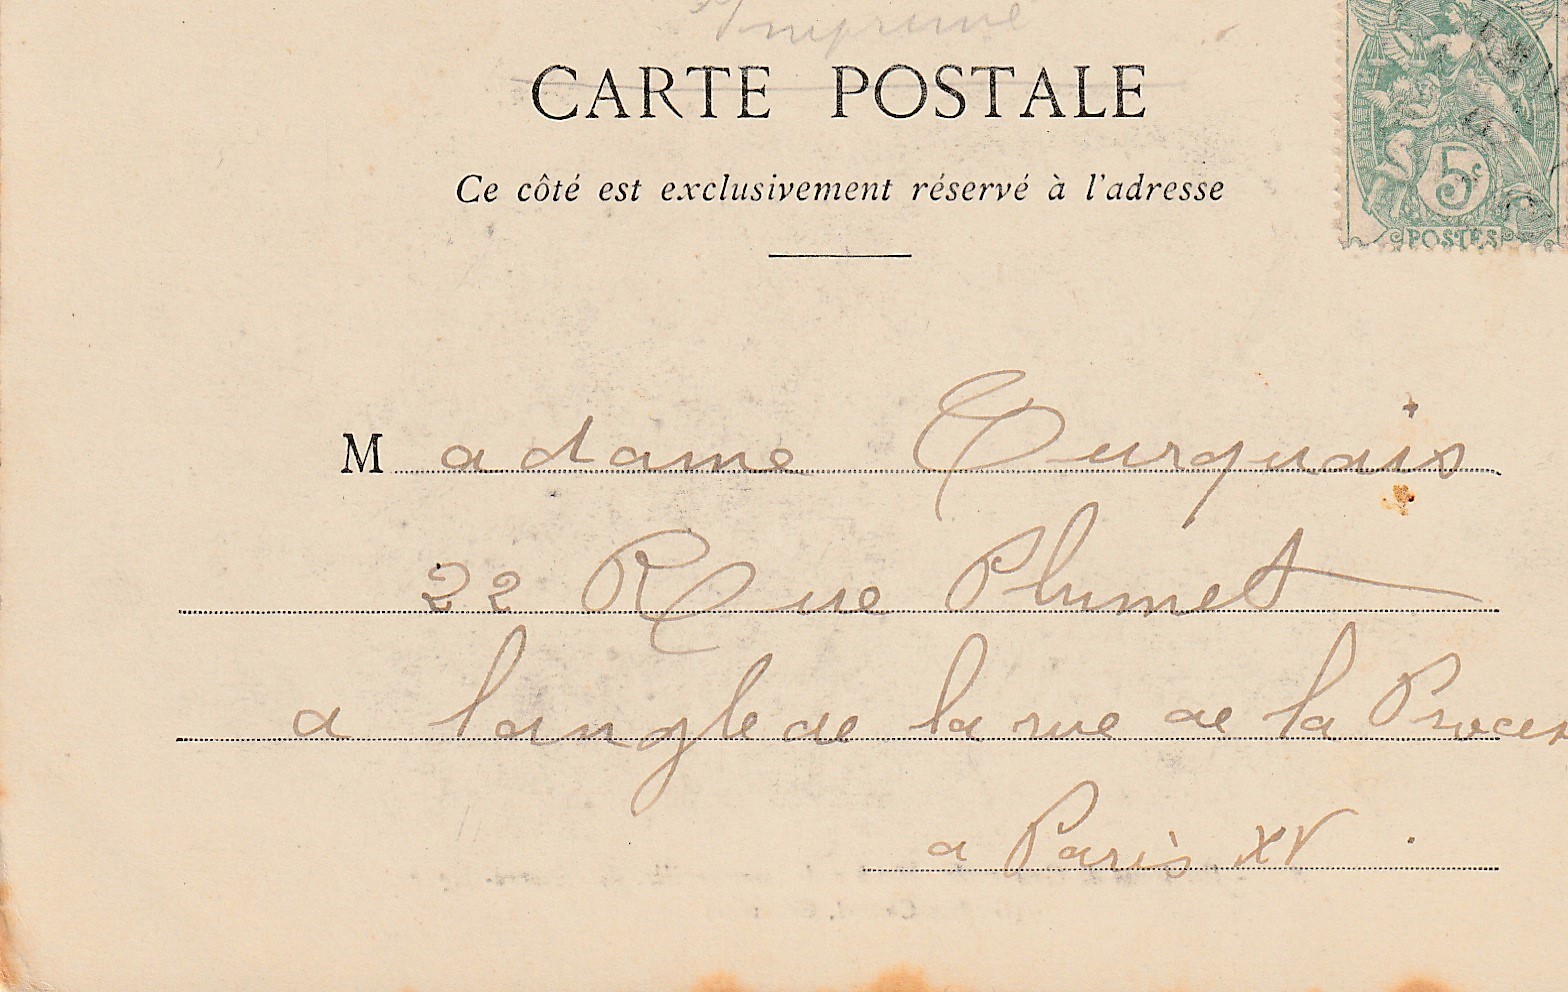 Imprimé
CARTE POSTALE
Ce côté est exclusivement réservé à l'adresse
5c
POSTES
Madame Turquais
22 Rue Plumet
a langle de la rue de la Proces
a Paris XV